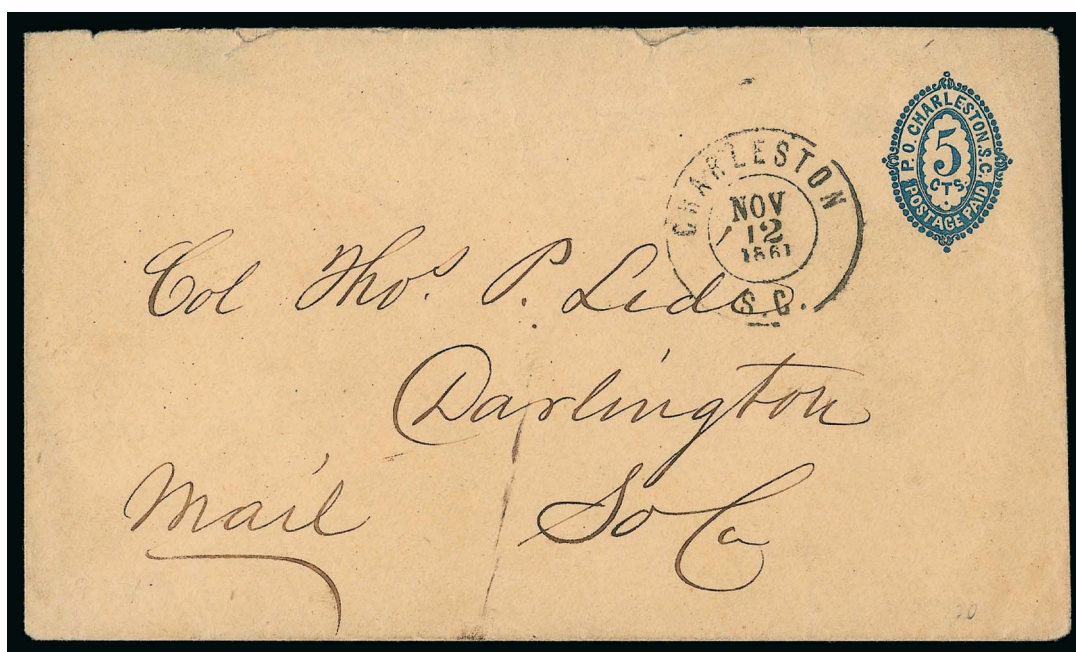 P.O. CHARLESTON. S.C.
5
CTS.
POSTAGE PAID
CHARLESTON
NOV
12
1861
S.C.
Col Thos. P. Lide
Darlington
Mail So Ca
20